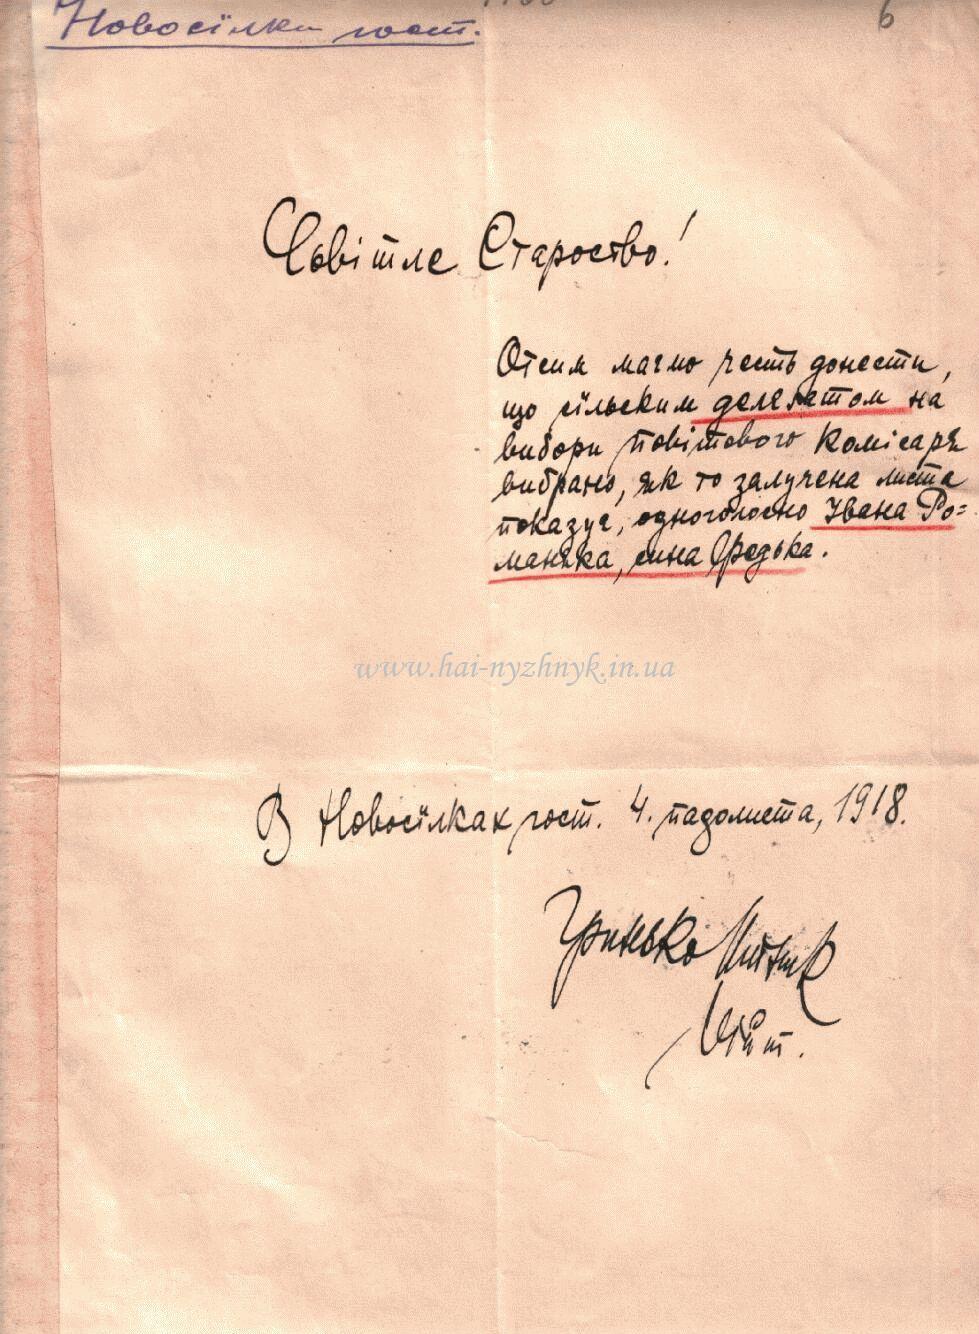 Новосїлки гост.
6
Світле Староство!
Отсим маємо честь донести,
що сїльским делєґатом на
вибори повітового комісаря
вибрано, як то залучена листа
показує, одноголосно Івана Ро=
маняка, сина Федька.
www.hai-nyzhnyk.in.ua
В Новосїлках гост. 4. падолиста, 1918.
Гринько
Війт.